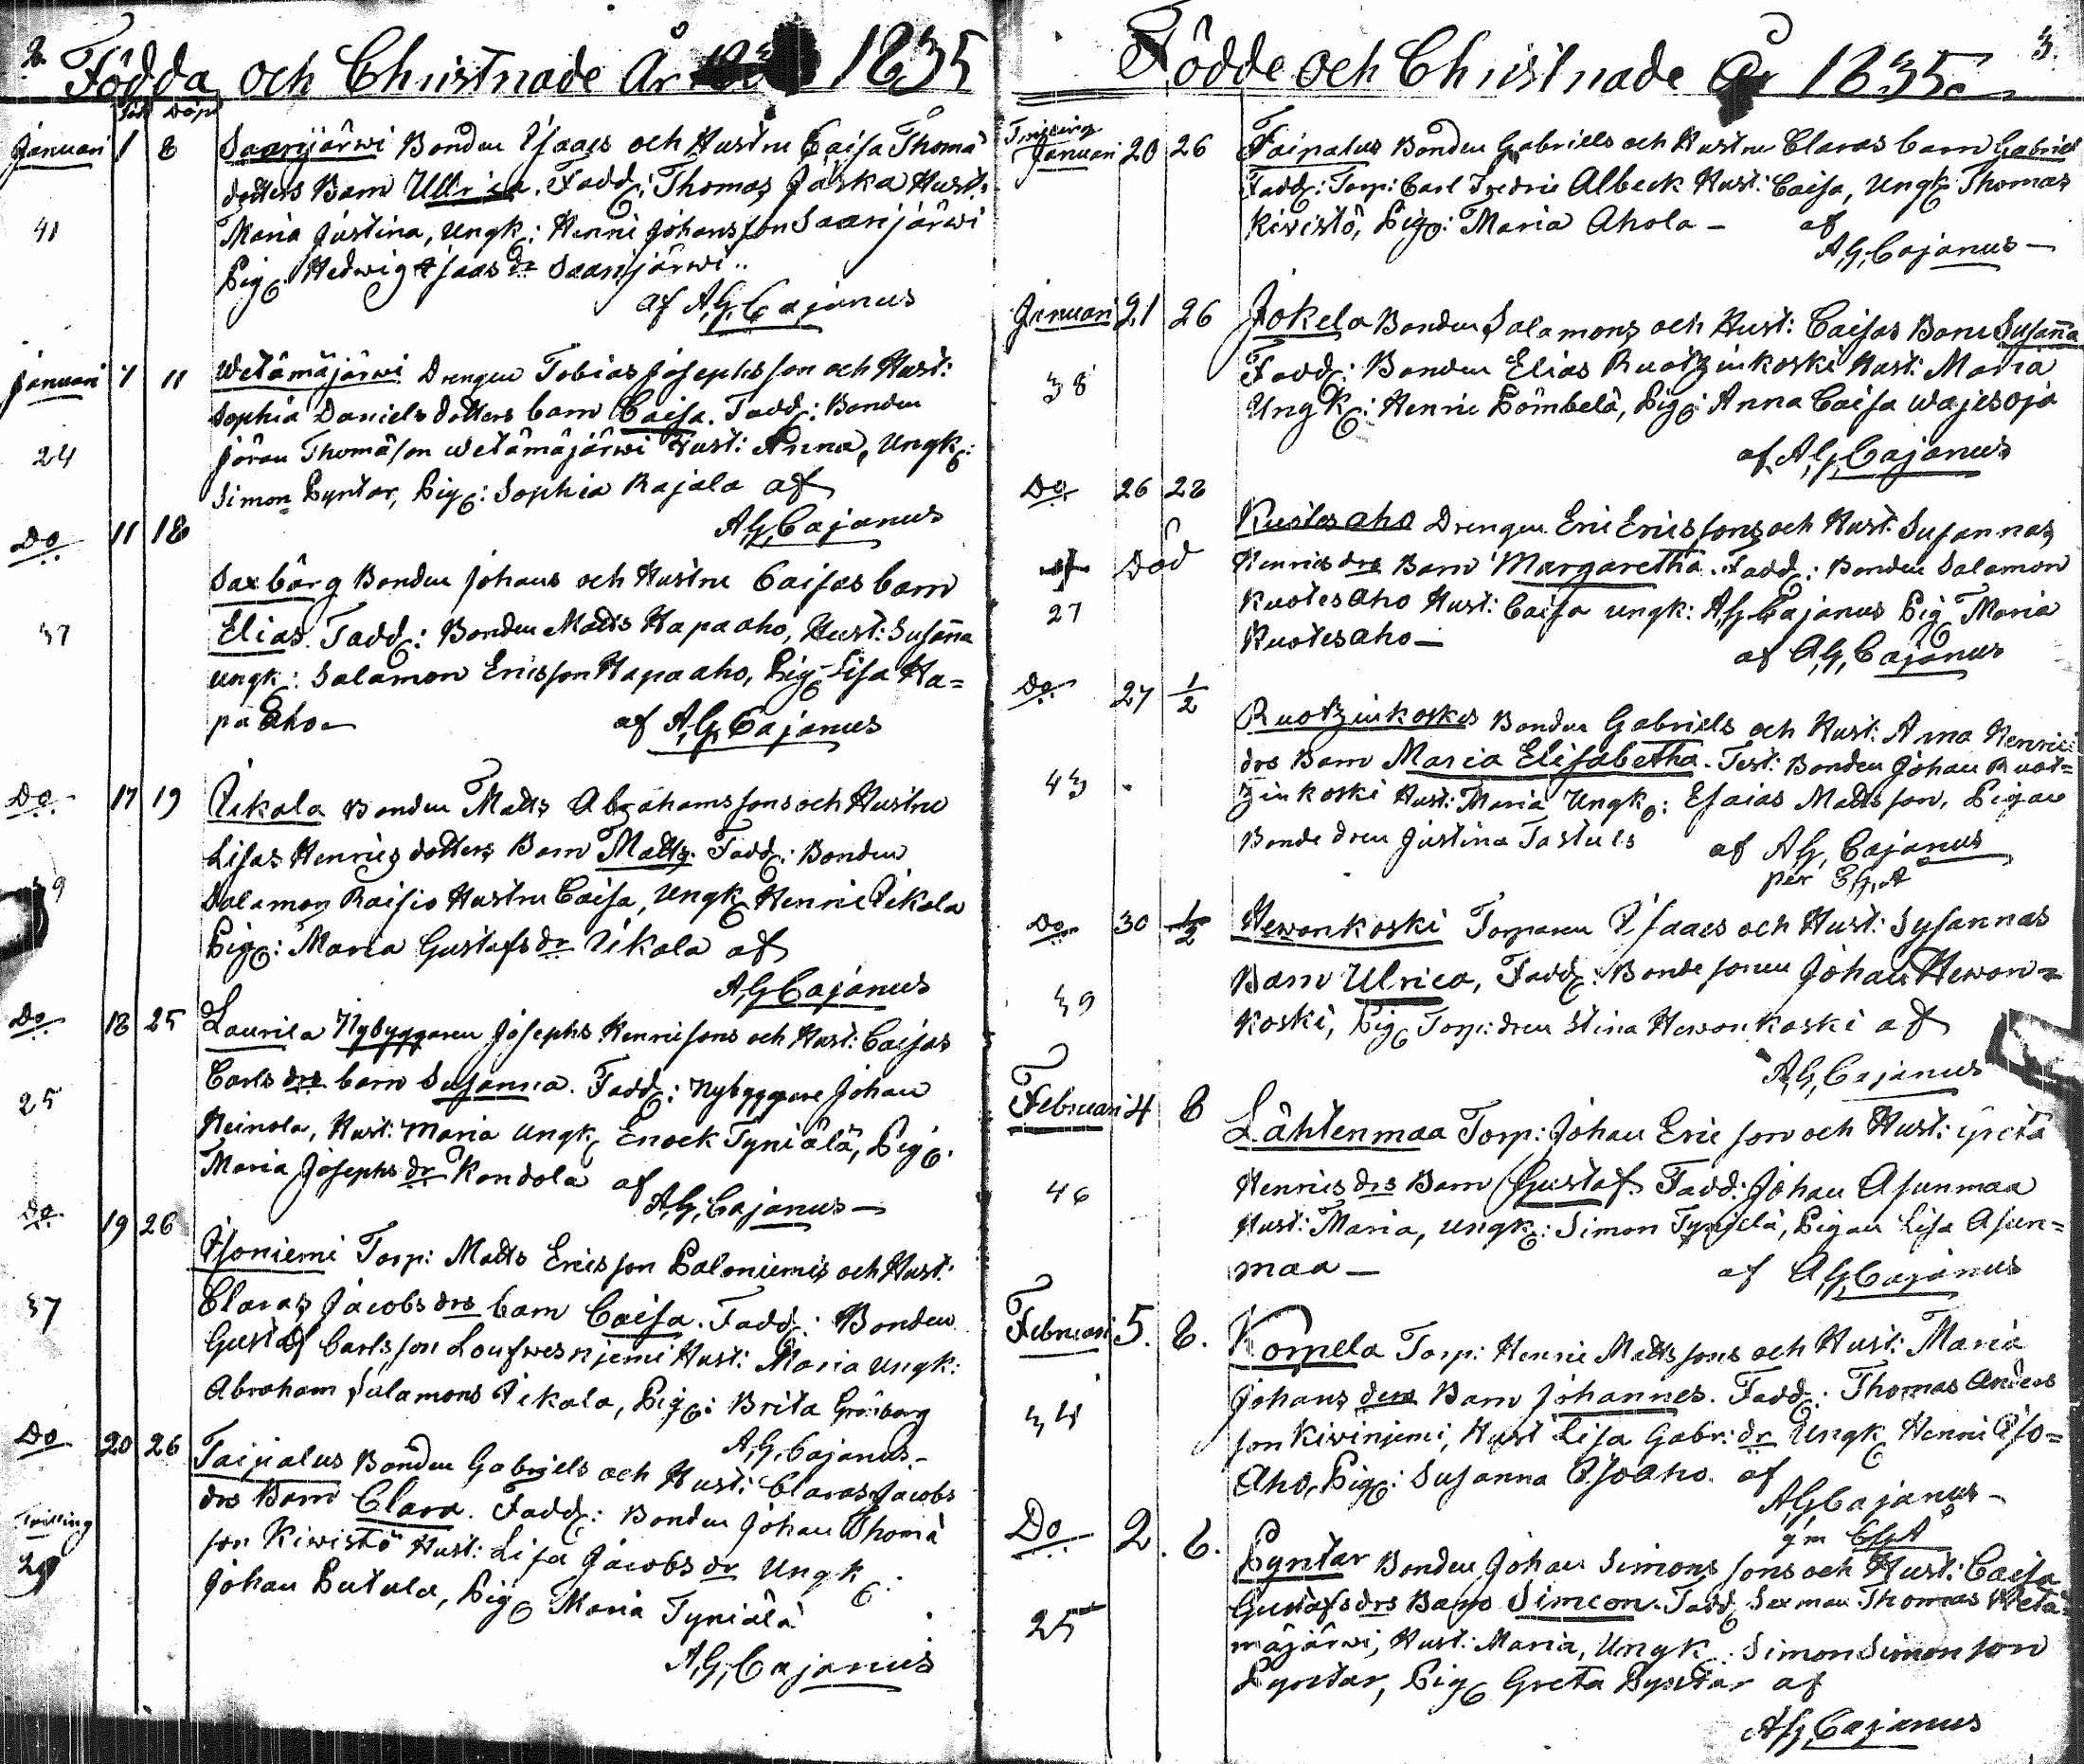 2.
Födda och Christnade År 1835
Född Döpt
Januari 1 8 Saarijärwi Bonden Isaacs och Hustru Caisa Thomä
dotters Barn Ullrica. Fadd: Thomas Jaska Hust:
41 Maria Justina, Ungk: Henric Johansson Saarijärwi
Pig Hedwig Isaas dr Saarijärwi
af A,G,Cajanus
Januari 7 11 Wetämäjärwi Drengen Tobias Josephsson och Hust:
Sophia Daniels dotters barn Caisa. Fadd: Bonden
24 Jöran Thomäson Wetämäjärwi Hust: Anna, Ungk:
Simon Pyntar, Pig: Sophia Rajala af
A,G,Cajanus
Do 11 18
Saxbärg Bonden Johans och Hustru Caisas barn
37 Elias. Fadd: Bonden Matts Hapaaho, Hust: Susanna
ungk: Salamon Ericsson Hapaaho, Pig Lisa Ha=
pa aho— af A,G,Cajanus
Do 17 19 Pekola Bonden Matts Abrahamssons och Hustru
Lisas Henrics dotters Barn Matts. Fadd: Bonden
39 Salamon Raisio Hustru Caisa, Ungk Henric Pekola
Pig: Maria Gustafs dr Pekola af
A,G Cajanus
Do 18 25 Laurila Nybyggaren Josephs Henricsons och Hust: Caisas
Carls drs barn Susanna. Fadd: Nybyggare Johan
25 Heinola, Hust: Maria Ungk Enock Tyniälä, Pig
Maria Josephs dr Kondola af
A,G,Cajanus—
Do 19 26
Isoniemi Torp: Matts Ericsson Paloniemis och Hust:
37 Claras Jacobs drs barn Caisa. Fadd: Bonden
Gustaf Carlsson Loufwesnjemi Hust: Maria ungk:
Abraham Salamons Pekola, Pig: Brita Grönborg
A,G,Cajanus—
Do 20 26 Taipalus Bonden Gabriels och Hust: Claras Jacobs
Tvilling drs Barn Clara. Fadd: Bonden Johan Thomä
29 son Kiwistö Hust: Lisa Jacobs dr Ungk
Johan Putula, Pig Maria Tyniälä
A,G,Cajanus
3.
Födde och Christnade År 1835.
Tvilling
Januari 20 26 Taipalus Bonden Gabriels och Hustru Claras barn Gabriel
Fadd: Torp: Carl Fredric Albeck Hust: Caisa, Ungk Thomas
Kivistö, Pig: Maria Ahola— af
A,G,Cajanus—
Januari 21 26 Jokela Bonden Salamons och Hust: Caisas Barn Susanna
38 Fadd: Bonden Elias Ruotzinkoski Hust: Maria
Ungk: Henric Pömbelä, Pig: Anna Caisa Wajesoja
af A,G,Cajanus
Do 26 28
Kuotesaho Drengen Eric Ericssons och Hust: Susannas
Död Henrics drs Barn Margaretha. Fadd: Bonden Salamon
27 Kuotesaho Hust: Caisa ungk: A,G,Cajanus Pig Maria
Kuotesaho—
af A,G,Cajanus
Do 27 1/2
Ruotzinkoskis Bonden Gabriels och Hust: Anna Henrics
drs Barn Maria Elisabetha. Test: Bonden Johan Ruot=
43 zinkoski Hust: Maria Ungk: Esaias Mattsson, Pigan
Bonde dren Justina Tastuls af A,G, Cajanus
per E,G,A
Do 30 1/2 Hewonkoski Torparen Isaacs och Hust: Susannas
Barn Ulrica, Fadd: Bonde sonen Johan Hewon=
39 koski, Pig Torp: dren Stina Hewonkoski af
A,G,Cajanus
Februari 4 8
Lähtenmaa Torp: Johan Eric son och Hust: Greta
46 Henrics drs Barn Gustaf. Fadd: Johan Asunmaa
Hust: Maria, ungk: Simon Tynjelä, Pigan Lisa Asun=
maa— af A,G,Cajanus
Februari 5. 8. Kompela Torp: Henric Mattssons och Hust: Maria
Johans ders Barn Johannes. Fadd: Thomas Anders
34 son Kivinjemi, Hust Lisa Gabr: dr Ungk Henric Iso=
Aho, Pig: Susanna Isoaho. af
A,G Cajanus—
g'm EGA
Do 2. 8. Pyntar Bonden Johan Simons sons och Hust: Caisa
Gustafs drs Barn Simeon. Fadd Sexman Thomas Wetä=
25 mäjärwi, Hust: Maria, Ungk: Simon Simonson
Pyntar, Pig Greta Pyntar af
A,G,Cajanus